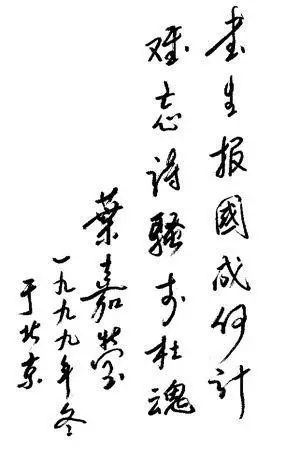 书生报國成何计
难忘诗骚李杜魂
葉嘉莹
一九九九年冬
于北京